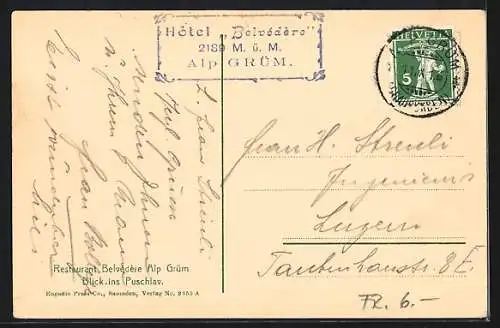 Hôtel „Belvédère"
2189 M. ü. M.
Alp GRÜM.
HELVETIA
5
GRÜM
L. Frau Streuli
Hzl. Grüsse
senden Ihnen
u. Ihrem
Frau
Frau H. Streuli
Ingenieurs
Luzern
Taubenhausstr. 8 E.
Restaurant Belvédère Alp Grüm
Blick ins Puschlav.
Engadin Press Co., Samaden, Verlag No. 2153 A
FR. 6.-